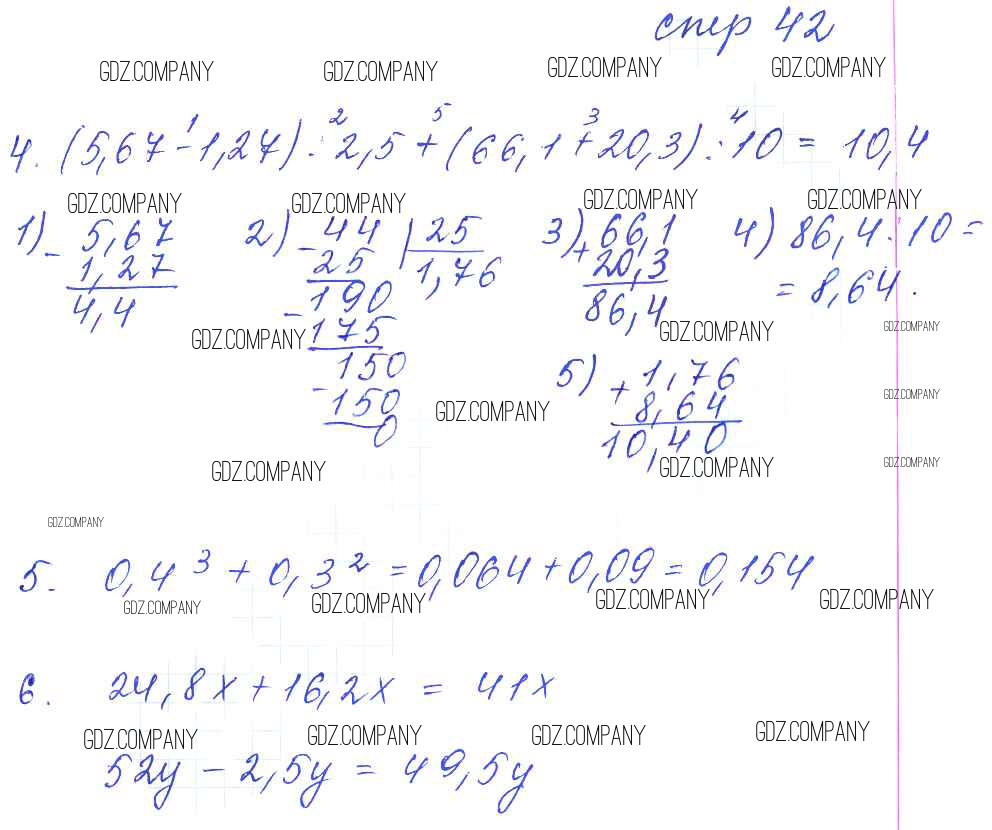 стр 42
GDZ.COMPANY GDZ.COMPANY GDZ.COMPANY GDZ.COMPANY
1 2 5 3 4
4. (5,67 - 1,27) : 2,5 + (66,1 + 20,3) : 10 = 10,4
GDZ.COMPANY GDZ.COMPANY GDZ.COMPANY GDZ.COMPANY
1) - 5,67
1,27
4,4
2) - 44 | 25
25 1,76
- 190
175
150
- 150
0
3) + 66,1
20,3
86,4
4) 86,4 : 10 =
= 8,64.
GDZ.COMPANY GDZ.COMPANY GDZ.COMPANY
5) + 1,76
8,64
10,40
GDZ.COMPANY
GDZ.COMPANY
GDZ.COMPANY GDZ.COMPANY GDZ.COMPANY
GDZ.COMPANY
5. 0,4³ + 0,3² = 0,064 + 0,09 = 0,154
GDZ.COMPANY GDZ.COMPANY GDZ.COMPANY GDZ.COMPANY
6. 24,8x + 16,2x = 41x
GDZ.COMPANY GDZ.COMPANY GDZ.COMPANY GDZ.COMPANY
52y - 2,5y = 49,5y